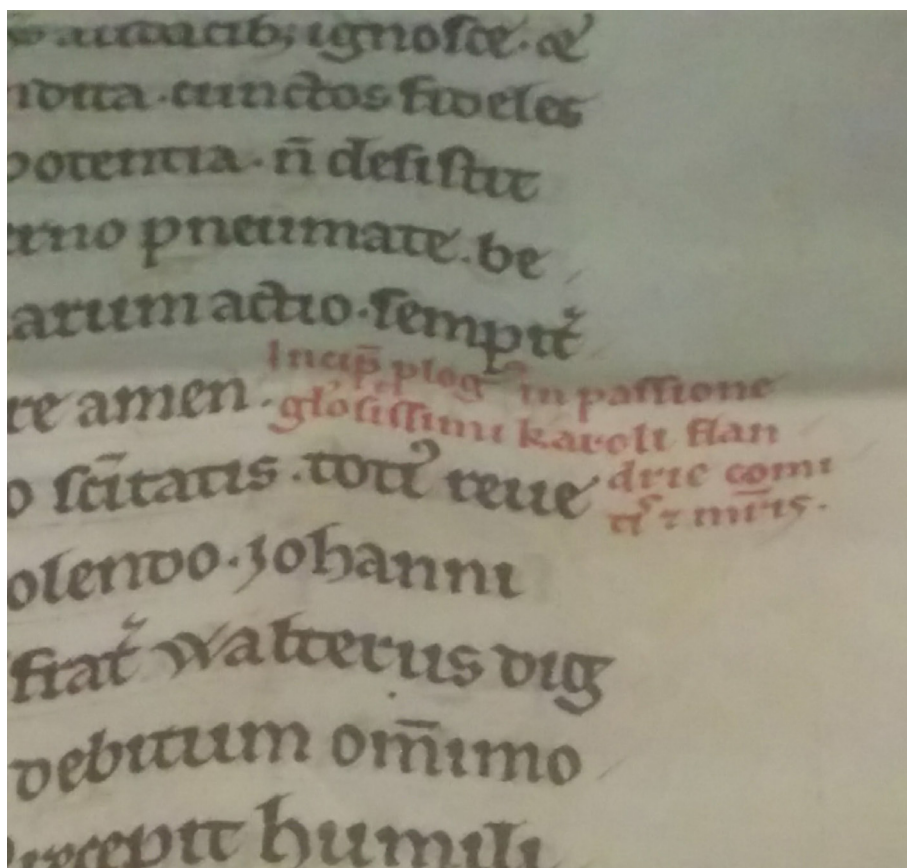 audacib; ignosce. &
cunctos fideles
potentia. n̄ desistit
pneumate. be
actio. sempit᷑
re amen.
Incip̄ plog᷑ in passione
glo᷑sissimi karoli flan
drie comi
tis ⁊ mr̄is.
sc̄itatis. totiꝰ reue
olendo. Johanni
frat᷑ Walterus dig
debitum om̄imo
humili